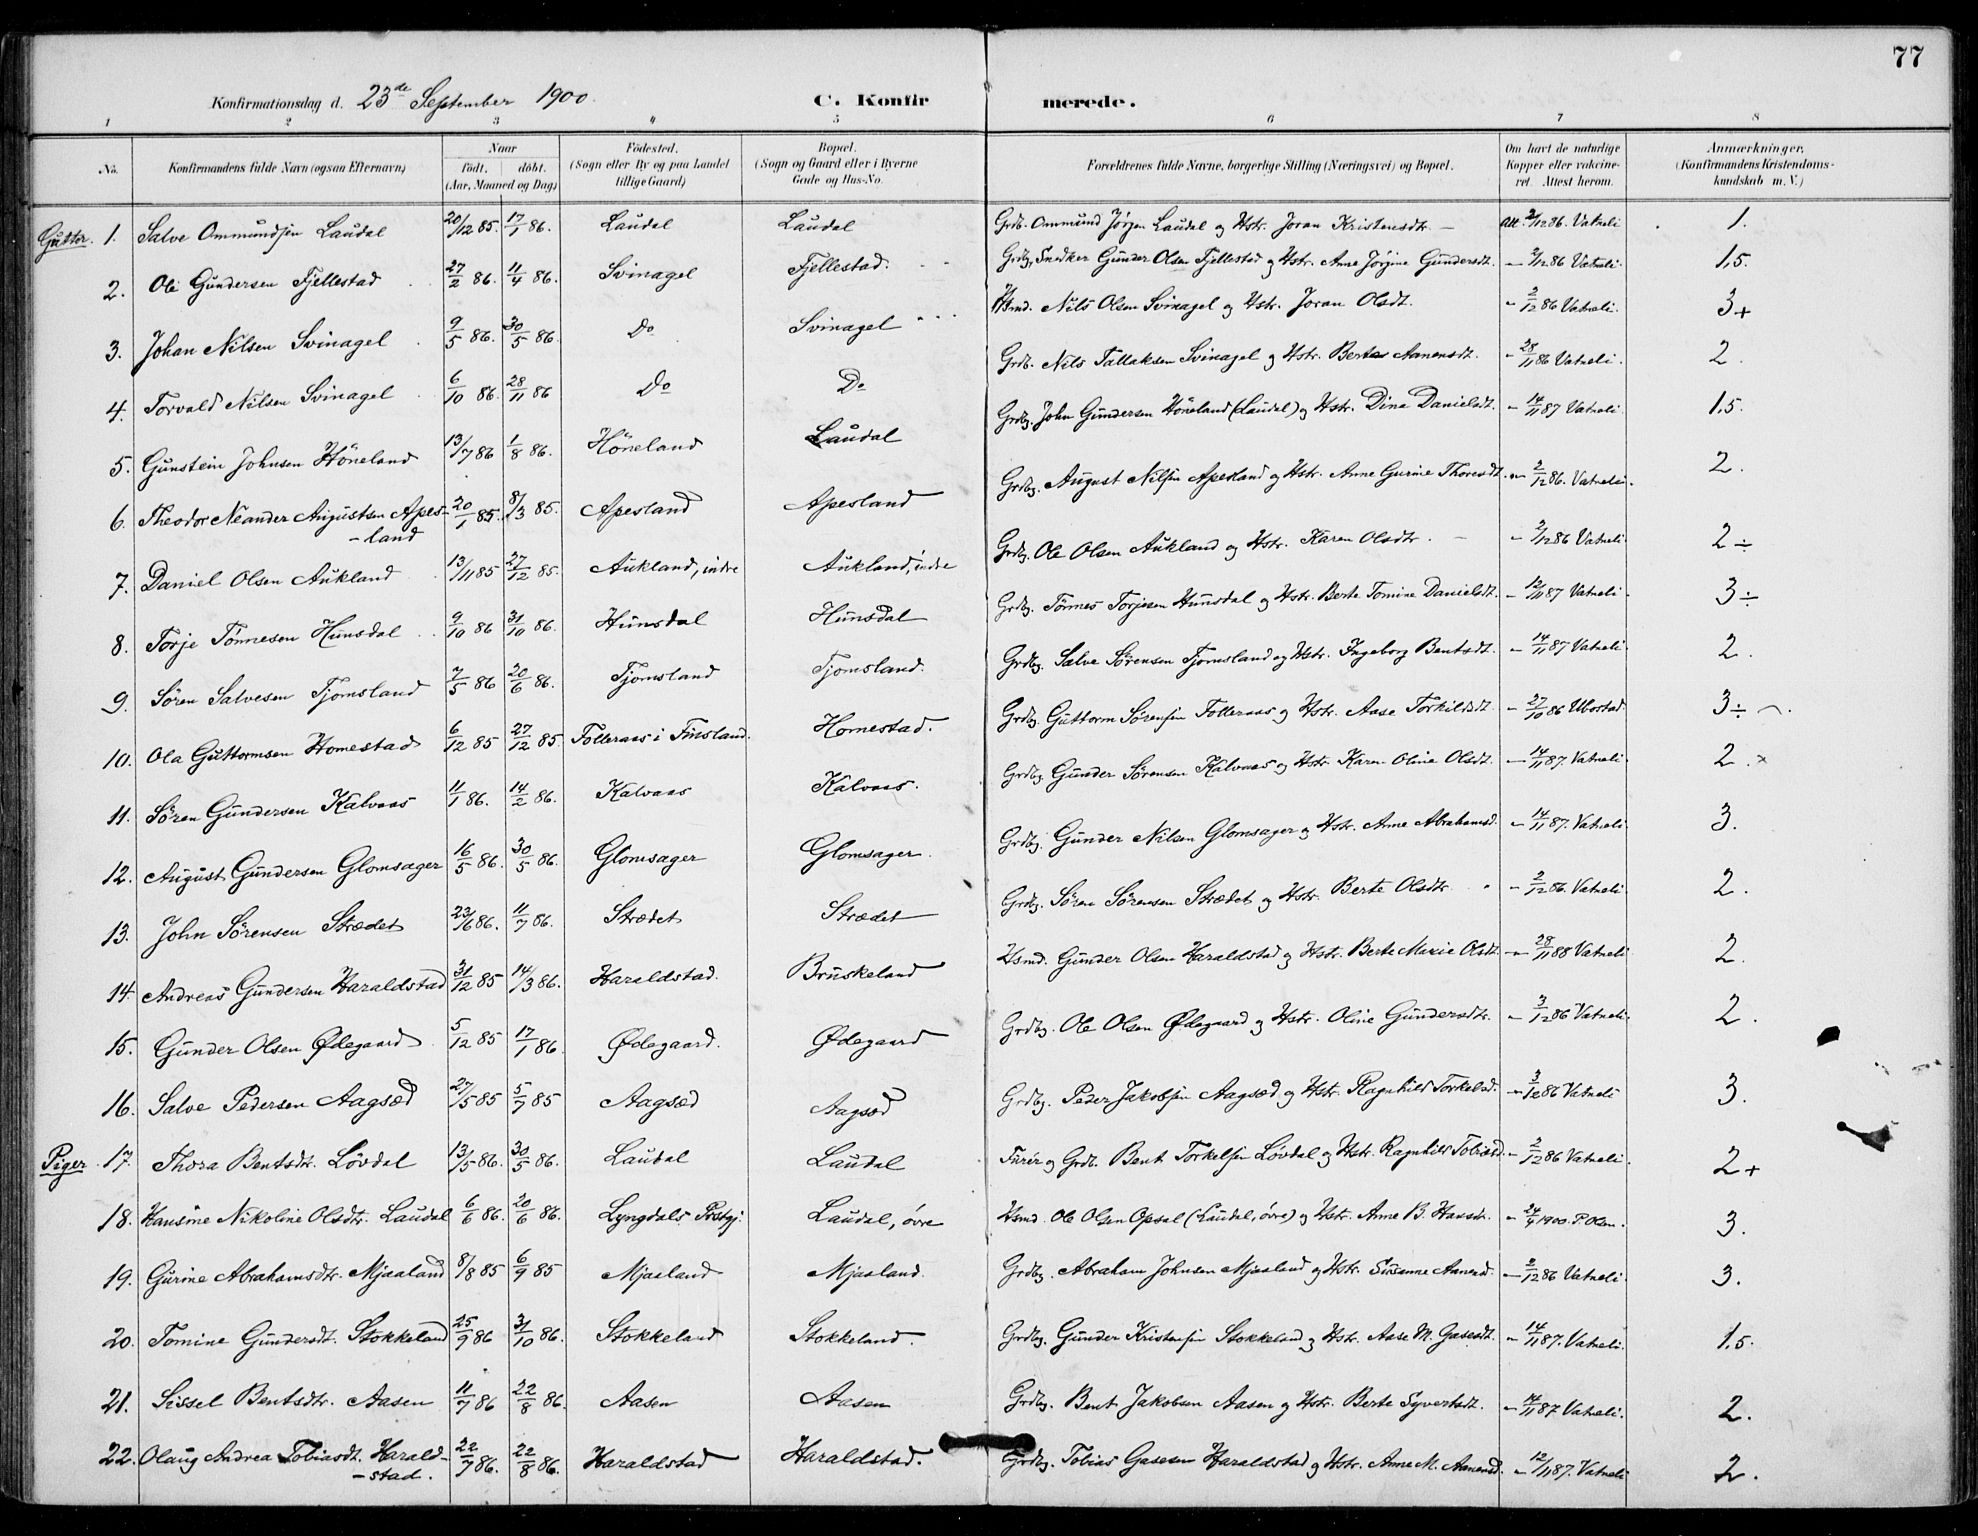 77
Konfirmationsdag d. 23de September 1900. C. Konfirmerede.
1 2 3 4 5 6 7 8
No. Konfirmandens fulde Navn (ogsaa Efternavn) Naar født. døbt. (Aar, Maaned og Dag) Fødested. (Sogn eller By og paa Landet tillige Gaard) Bopæl. (Sogn og Gaard eller i Byerne Gade og Hus-No. Forældrenes fulde Navne, borgerlige Stilling (Næringsvei) og Bopæl. Om havt de naturlige Kopper eller vaccineret. Attest herom. Anmærkninger, (Konfirmandens Kristendomskundskab m. V.)
Gutter. 1. Salve Ommundsen Laudal 20/12 85. 17/1 86. Laudal Laudal Grdb. Ommund Jørgen Laudal og Hstr. Joran Kristensdtr. Att. 2/12 86. Vatneli 1.
2. Ole Gundersen Fjellestad 27/2 86. 11/4 86. Svinagel Fjellestad. Grdbg, Snedker Gunder Olsen Fjellestad og Hstr. Anne Jørgine Gundersdt. - 2/12 86 Vatneli. 1,5.
3. Johan Nilsen Svinagel 9/5 86. 30/5 86. Do Svinagel Hsmd. Nils Olsen Svinagel og Hstr. Joran Olsdt. - 2/12 86 Vatneli. 3+
4. Torvald Nilsen Svinagel 6/10 86. 28/11 86 Do Do Grdb. Nils Tallaksen Svinagel og Hstr. Berte Aanensdt. - 28/11 86 Vatneli. 2.
5. Gunstein Johnsen Høneland 13/7 86 1/8 86. Høneland Laudal Grdbg. John Gundersen Høneland (Laudal) og Hstr. Dina Danielsdt. - 14/11 87 Vatneli. 1,5.
6. Theodor Neander Augustsen Apes-land 20/1 85. 8/3 85. Apesland Apesland Grdbg. August Nilsen Apesland og Hstr. Anne Gurine Thoresdt. - 2/12 86. Vatneli. 2.
7. Daniel Olsen Aukland 13/11 85 27/12 85. Aukland, indre Aukland, indre Grdbg. Ole Olsen Aukland og Hstr. Karen Olsdtr. - 2/12 86 Vatneli 2÷
8. Torje Tønnesen Hunsdal 9/10 86 31/10 86. Hunsdal Hunsdal Grdbg. Tønnes Torjesen Hunsdal og Hstr. Berte Tomine Danielsdt. - 12/11 87 Vatneli. 3÷
9. Søren Salvesen Tjomsland 7/5 86 20/6 86. Tjomsland Tjomsland. Grdbg. Salve Sørensen Tjomsland og Hstr. Ingeborg Bentsdt. - 14/11 87 Vatneli. 2.
10. Ola Guttormsen Homestad 6/12 85 27/12 85. Folleraas i Finsland. Homestad. Grdbg. Guttorm Sørensen Folleraas og Hstr. Aase Torkildsdt. - 27/10 86 Ubostad 3÷
11. Søren Gundersen Kalvaas 11/1 86. 14/2 86. Kalvaas Kalvaas. Grdbg. Gunder Sørensen Kalvaas og Hstr. Karen Oline Olsdt. - 14/11 87. Vatneli. 2.×
12. August Gundersen Glomsager 16/5 86. 30/5 86. Glomsager Glomsager. Grdbg. Gunder Nilsen Glomsager og Hstr. Anne Abrahamsd. - 14/11 87. Vatneli. 3.
13. John Sørensen Strædet 23/6 86. 11/7 86. Strædet Strædet Grdbg. Søren Sørensen Strædet og Hstr. Berte Olsdtr. - 2/12 86. Vatneli. 2.
14. Andreas Gundersen Haraldstad 31/12 85 14/3 86. Haraldstad. Bruskeland Hsmd. Gunder Olsen Haraldstad og Hstr. Berte Marie Olsdt. - 28/11 88 Vatneli. 2.
15. Gunder Olsen Ødegaard 5/12 85 17/1 86. Ødegaard. Ødegaard Grdbg. Ole Olsen Ødegaard og Hstr. Oline Gundersdtr. - 3/12 86 Vatneli. 2.
16. Salve Pedersen Aagsæd 27/5 85 5/7 85 Aagsæd Aagsæd Grdbg. Peder Jakobsen Aagsæd og Hstr. Ragnhild Torkelsd. - 3/12 86 Vatneli 3.
Piger 17. Thora Bentsdtr. Løvdal 13/5 86. 30/5 86. Laudal Laudal og Grdb. Bent Torkelsen Løvdal og Hstr. Ragnhild Tobiasd. - 2/12 86 Vatneli. 2+
18. Hansine Nikoline Olsdtr. Laudal 6/6 86. 20/6 86. Lyngdals Prstgj. Laudal, øvre Hsmd. Ole Olsen Opsal (Laudal, øvre) og Hstr. Anne B. Hansdr. - 24/4 1900. P. Olsen. 3.
19. Gurine Abrahamsdtr. Mjaaland 8/8 85 6/9 85 Mjaaland Mjaaland. Grdbg. Abraham Johnsen Mjaaland og Hstr. Susanne Aanensd. - 2/12 86 Vatneli. 3.
20. Tomine Gundersdt. Stokkeland 25/9 86 31/10 86. Stokkeland Stokkeland. Grdbg. Gunder Kristensen Stokkeland og Hstr. Aase M. Gasesdt. - 14/11 87. Vatneli. 1,5.
21. Sissel Bentsdtr. Aasen 11/7 86 22/8 86. Aasen Aasen Grdbg. Bent Jakobsen Aasen og Hstr. Berte Syvertsdt. - 14/11 87 Vatneli. 2.
22. Olaug Andrea Tobiasdt. Harald-stad. 22/7 86. 22/8 86. Haraldstad Haraldstad. Grdbg. Tobias Gasesen Haraldstad og Hstr. Anne M. Aanensd. - 12/11 87. Vatneli 2.